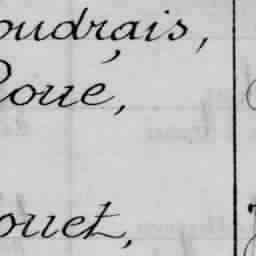 oudrais,
Roué,
ouet,